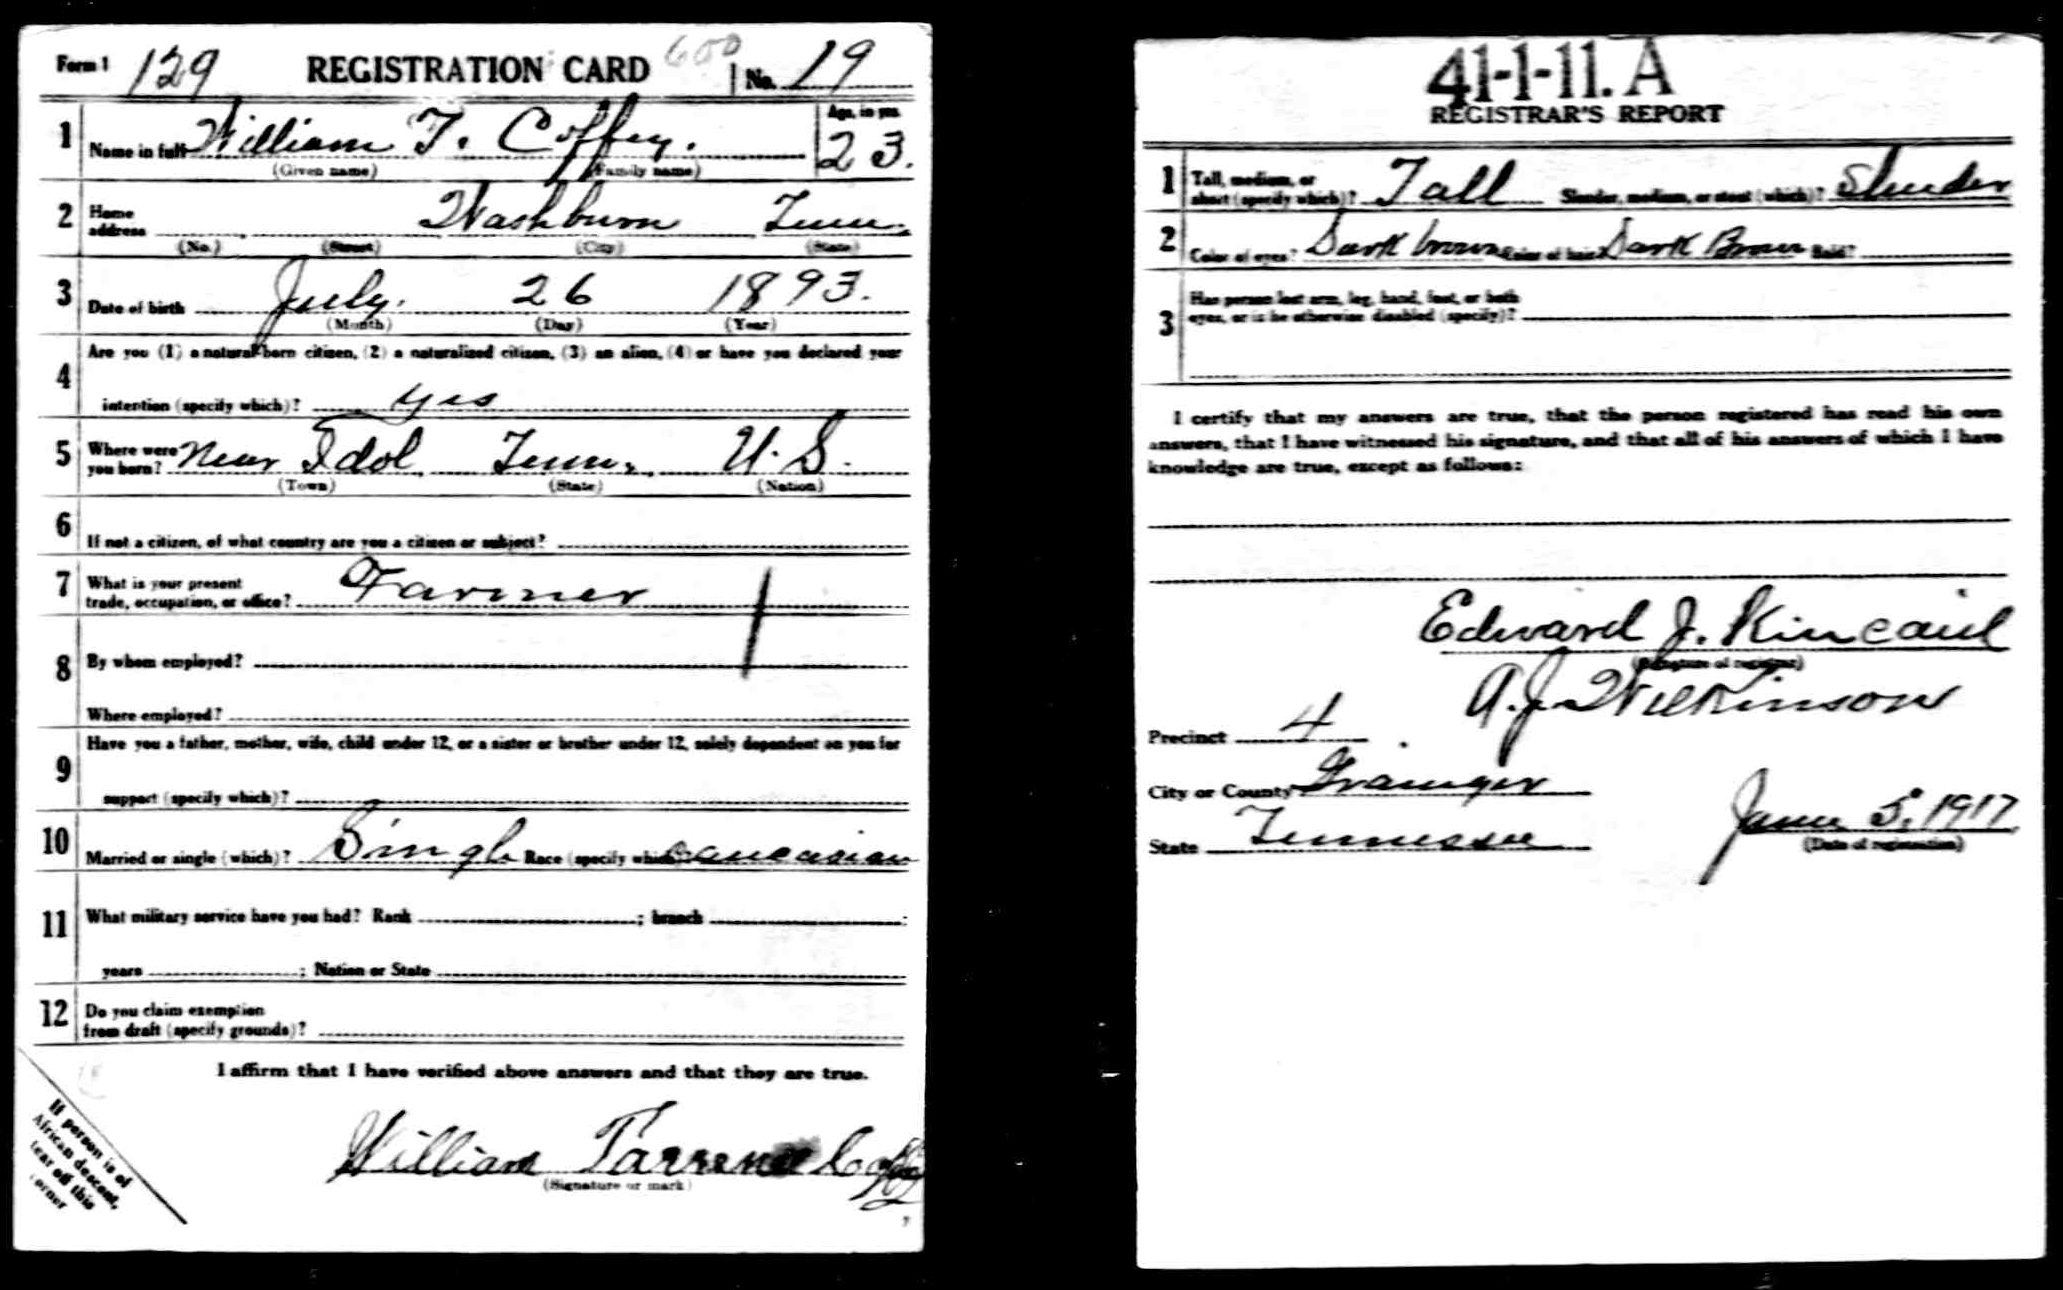 Form 1 129 REGISTRATION CARD 600 No. 19
1 Name in full William T. Coffey. Age, in yrs. 23.
(Given name) (Family name)
2 Home address Washburn Tenn.
(No.) (Street) (City) (State)
3 Date of birth July. 26 1893.
(Month) (Day) (Year)
4 Are you (1) a natural-born citizen, (2) a naturalized citizen, (3) an alien, (4) or have you declared your
intention (specify which)? yes
5 Where were you born? Near Idol Tenn. U.S.
(Town) (State) (Nation)
6 If not a citizen, of what country are you a citizen or subject?
7 What is your present
trade, occupation, or office? Farmer
8 By whom employed?
Where employed?
9 Have you a father, mother, wife, child under 12, or a sister or brother under 12, solely dependent on you for
support (specify which)?
10 Married or single (which)? Single Race (specify which)? Caucasian
11 What military service have you had? Rank ; branch ;
years ; Nation or State
12 Do you claim exemption
from draft (specify grounds)?
I affirm that I have verified above answers and that they are true.
William Coffey
(Signature or mark)
If person is of
African descent,
tear off this
corner
41-1-11. A
REGISTRAR'S REPORT
1 Tall, medium, or
short (specify which)? Tall Slender, medium, or stout (which)? Slender
2 Color of eyes? Dark brown Color of hair? Dark Brown Bald?
3 Has person lost arm, leg, hand, foot, or both
eyes, or is he otherwise disabled (specify)?
I certify that my answers are true, that the person registered has read his own
answers, that I have witnessed his signature, and that all of his answers of which I have
knowledge are true, except as follows:
Edward J. Kincaid
(Signature of registrar)
A.J. Wilkinson
Precinct 4
City or County Grainger
State Tennessee
June 5, 1917
(Date of registration)